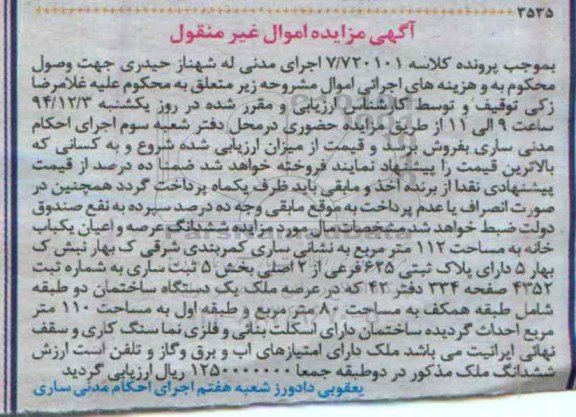 ۳۵۳۵
آگهی مزایده اموال غیر منقول
بموجب پرونده کلاسه ۷/۷۲۰۱۰۱ اجرای مدنی له شهناز حیدری جهت وصول
محکوم به و هزینه های اجرائی اموال مشروحه زیر متعلق به محکوم علیه غلامرضا
زکی توقیف و توسط کارشناس ارزیابی و مقرر شده در روز یکشنبه ۹۴/۱۲/۳
ساعت ۹ الی ۱۱ از طریق مزایده حضوری درمحل دفتر شعبه سوم اجرای احکام
مدنی ساری بفروش برسد و قیمت از میزان ارزیابی شده شروع و به کسانی که
بالاترین قیمت را پیشنهاد نمایند فروخته خواهد شد ضمنا ده درصد از قیمت
پیشنهادی نقدا از برنده اخذ و مابقی باید ظرف یکماه پرداخت گردد همچنین در
صورت انصراف یا عدم پرداخت به موقع مابقی وجه ده درصد سپرده به نفع صندوق
دولت ضبط خواهد شد مشخصات مال مورد مزایده ششدانگ عرصه و اعیان یکباب
خانه به مساحت ۱۱۲ متر مربع به نشانی ساری کمربندی شرقی ک بهار نبش ک
بهار ۵ دارای پلاک ثبتی ۶۲۵ فرعی از ۲ اصلی بخش ۵ ثبت ساری به شماره ثبت
۴۳۵۲ صفحه ۳۳۴ دفتر ۴۳ که در عرصه ملک یک دستگاه ساختمان دو طبقه
شامل طبقه همکف به مساحت ۸۰ متر مربع و طبقه اول به مساحت ۱۱۰ متر
مربع احداث گردیده ساختمان دارای اسکلت بنائی و فلزی نما سنگ کاری و سقف
نهائی ایرانیت می باشد ملک دارای امتیازهای اب و برق وگاز و تلفن است ارزش
ششدانگ ملک مذکور در دوطبقه جمعا ۱۲۵۰۰۰۰۰۰۰ ریال ارزیابی گردید
یعقوبی دادورز شعبه هفتم اجرای احکام مدنی ساری